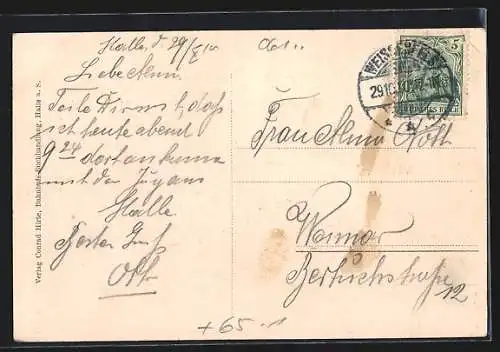 Halle, d. 29/X 10
Liebe Anna.
Teile Dir mit, daß
ich heute abend
9 24 dort ankomme
mit dem Zug aus
Halle
Bester Gruß
Otto
Frau Anna
Weimar
12
5 5
WEISSENFELS
29.10.10
DEUTSCHES REICH
Verlag Conrad Hirte, Bahnhofs-Buchhandlung, Halle a. S.
+65